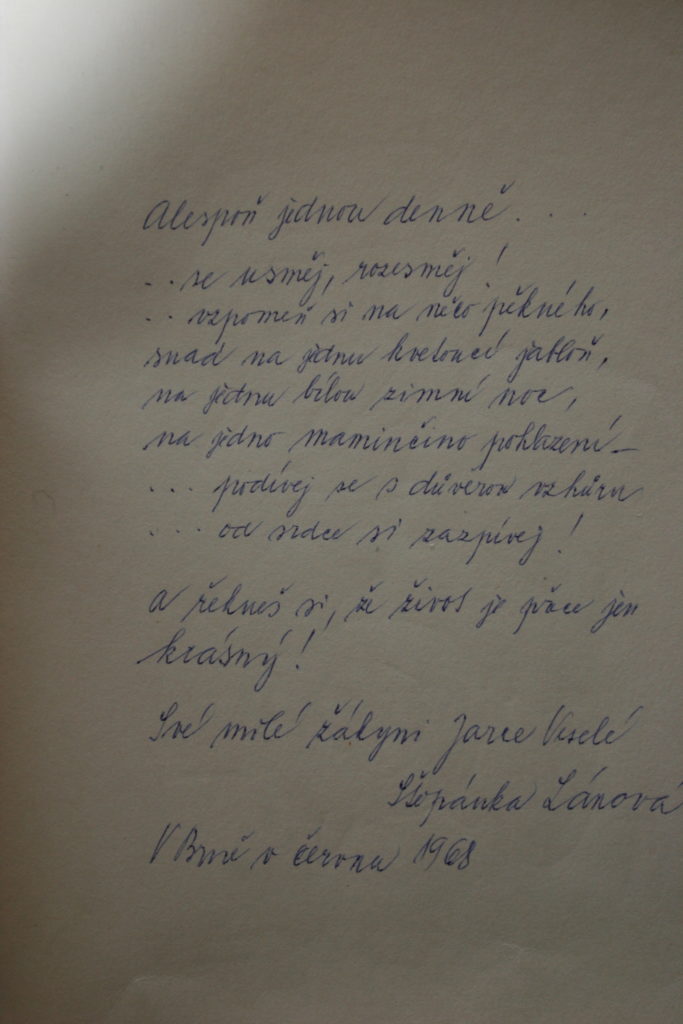 Alespoň jednou denně . . .
. . se usměj, rozesměj !
. . vzpomeň si na něco pěkného,
snad na jednu kvetoucí jabloň,
na jednu bílou zimní noc,
na jedno maminčino pohlazení –
. . . podívej se s důvěrou vzhůru
. . . od srdce si zazpívej !
a řekneš si, že život je přece jen
krásný !
Své milé žákyni Jarce Veselé
Štěpánka Lánová
V Brně v červnu 1968